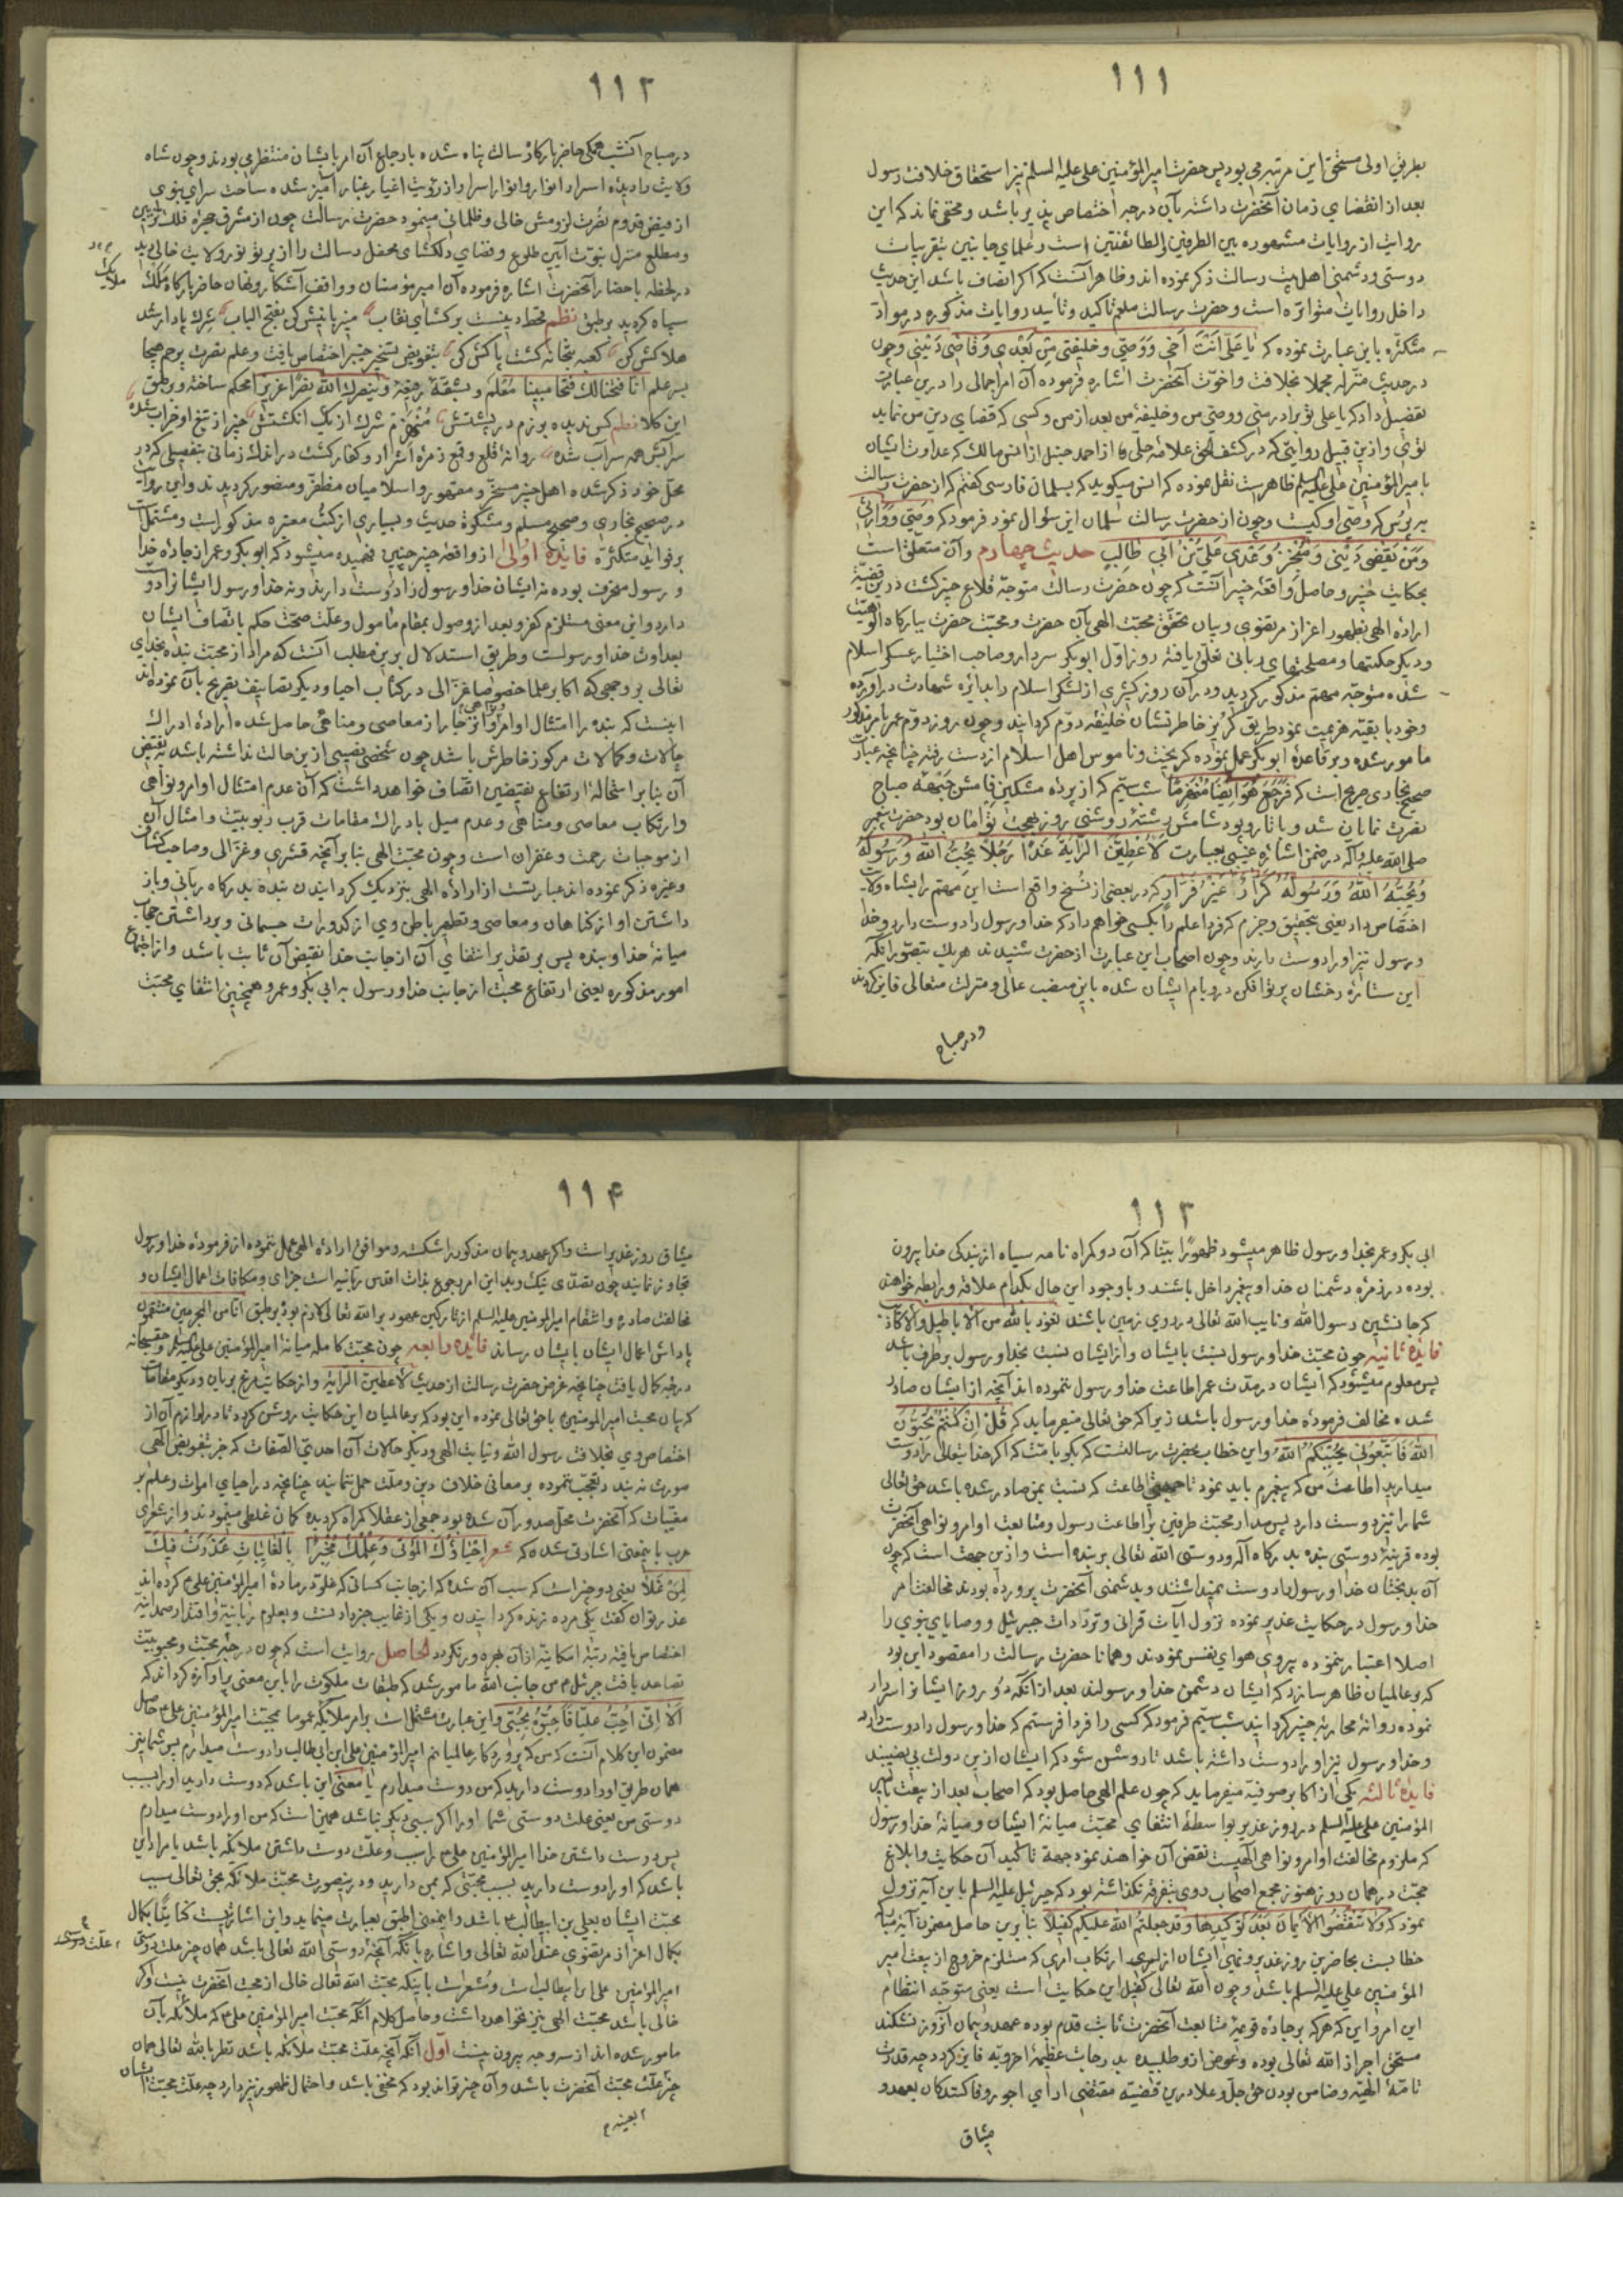 ١١١
بطریق اولی مستحق این مرتبه می بود پس حضرت امیر المؤمنین علی علیه السلم نیز استحقاق خلافت رسول
بعد از انقضای زمان آنحضرت داشته بآن درجه اختصاص پذیر باشد ومخفی نماند که این
روایت از روایات مشهوره بین الطرفین والطائفتین است وعلمای جانبین بتقریبات
دوستی ودشمنی اهل بیت رسالت ذکر نموده اند وظاهر آنست که اکر انصاف باشد این حدیث
داخل روایات متواتره است وحضرت رسالت صلعم تاکید وتأیید روایات مذکوره در مواد
متکثره باین عبارت نموده که یا علی انت اخی ووصی وخلیفتی من بعدی وقاضی دینی وچون
در حدیث منزله مجملا بخلافت واخوت آنحضرت اشاره فرموده آن امر اجمالی را درین عبارت
تفصیل داد که یا علی تو برادر منی ووصی من وخلیفه من بعد از من وکسی که قضای دین من نماید
توئی وازین قبیل روایتی که در کشف الحق علامه حلی از احمد حنبل از انس مالک که عداوت ایشان
با میر المؤمنین علی علیه السلم ظاهرست نقل نموده که انس میکوید که بسلمان فارسی کفتم که از حضرت رسالت
بپرس که وصی او کیست وچون از حضرت رسالت سلمان این سؤال نمود فرمود که وصی ووارثی
ومن یقضی دینی ومنجز وعدی علی بن ابی طالب حدیث چهارم وآن متعلق است
بحکایت خیبر وحاصل واقعه خیبر آنست که چون حضرت رسالت متوجه قلاع خیبر کشت درین قضیه
اراده الهی بظهور اعزاز مرتضوی وبیان تحقق محبت الهی بآن حضرت ومحبت حضرت ببارکاه الوهیت
ودیکر حکمتها ومصلحتهای ربانی تعلق یافته روز اول ابوبکر سردار وصاحب اختیار عسکر اسلام
شده متوجه مهم مذکور کردید ودر آن روز کثیری از لشکر اسلام را بدائره شهادت درآورده
وخود با بقیه هزیمت نمود طریق کریز خاطر نشان خلیفه دوم کردانید وچون روز دوم عمر بامر مذکور
مامور شده وبر قاعده ابوبکر عمل نموده کریخت وناموس اهل اسلام از دست رفته چنانچه عبارت
صحیح بخاری صریح است که فرجع هو ایضا منهزما شب سیّم که از پرده مشکین فامش جبهه صباح
نصرت نمایان شد وبا تار وپود شامش رشته روشنی روز بهجت توامان بود حضرت پیغمبر
صلی الله علیه وآله در ضمن اشاره غیبی بعبارت لاعطین الرایة غدا رجلا یحب الله ورسوله
ویحبه الله ورسوله کرار غیر فرار که در بعضی از نسخ واقع است این مهم را بشاه ولایت
اختصاص داد یعنی بتحقیق وجزم که فردا علم را بکسی خواهم داد که خدا ورسول را دوست دارد وخدا
ورسول نیز او را دوست دارند وچون اصحاب این عبارت از حضرت شنیدند هریک بتصور آنکه
این ستاره رخشان پرتو افکن در وبام ایشان شده باین منصب عالی ومنزلت متعالی فایز کردند
ودر صباح
١١٢
در صباح آنشب همکی حاضر بارکاه رسالت پناه شده بادراج آن امر بایشان منتظر می بودند وچون شاه
ولایت را دیده اسرار انوار وانوار اسرار از رؤیت اغیار غبار آمیز شده ساحت سرای نبوی
از فیض قدوم نصرت لزومش خالی وظلمانی مینمود حضرت رسالت چون از مشرق حجره
ومطلع منزل نبوت آیین طلوع وفضای دلکشای محفل رسالت را از پرتو نور ولایت خالی دید
در لحظه باحضار آنحضرت اشاره فرموده آن امیر مؤمنان وواقف آشکار ونهان حاضر بارکاه ملک
ملایک
سپاه کردید بر طبق نظم قحط دینست برکشای نقاب
هلا کش کن کعبه بتخانه کشت پاکش کن بتفویض تسخیر خیبر اختصاص یافت وعلم نصرت پرچم هیجا
بر علم انا فتحنا لک فتحا مبینا معلم وبشقه وینصرک الله نصرا عزیزا محکم ساخته وبر طبق
این کلام نظم کس ندیده برزم در پشتش منهزم شرک از یک انکشتش خیبر از تیغ او خراب شده
سرابش همه سراب شده روانه قلع وقمع زمره اشرار وکفار کشت در اندک زمانی بتفصیلی که در
محل خود ذکر شده اهل خیبر مسخر ومقهور واسلامیان مظفر ومنصور کردیدند واین روایت
در صحیح بخاری وصحیح مسلم ومشکوة حدیث وبسیاری از کتب معتبره مذکورست ومشتملست
بر فواید متکثره فایده اولی از واقعه خیبر چنین فهمیده میشود که ابوبکر وعمر از جاده خدا
ورسول منحرف بوده نه ایشان خدا ورسول را دوست دارند ونه خدا ورسول ایشانرا دوست
دارد واین معنی مستلزم کفر وبعد از وصول بمقام مامول وعلت صحت حکم باتصاف ایشان
بعداوت خدا ورسولست وطریق استدلال برین مطلب آنست که مراد از محبت بنده بخدای
تعالی بر وجهی که اکابر علما خصوصا غزالی در کتاب احیا ودیکر تصانیف تصریح بآن نموده اند
اینست که بنده را امتثال اوامر وانزجار از معاصی ومناهی حاصل شده اراده ادراک
حالات وکمالات مرکوز خاطرش باشد چون شخصی نصیبی ازین حالت نداشته باشد بنقیض
آن بنابر استحاله ارتفاع نقیضین اتصاف خواهد داشت که آن عدم امتثال اوامر ونواهی
وارتکاب معاصی ومناهی وعدم میل بادراک مقامات قرب ربوبیت وامثال آن
از موجبات رحمت وغفران است وچون محبت الهی بنابر آنچه قشری وغزالی وصاحب کشاف
وغیره ذکر نموده اند عبارتست از اراده الهی بنزدیک کردانیدن بنده بدرکاه ربانی وباز
داشتن او از کناهان ومعاصی وتطهیر باطن وی از کدورات جسمانی وبرداشتن حجاب
میانه خدا وبنده پس بر تقدیر انتفای آن از جانب خدا نقیض آن ثابت باشد واز اجتماع
امور مذکوره یعنی ارتفاع محبت از جانب خدا ورسول به ابی بکر وعمر وهمچنین انتفای محبت
١١٣
ابی بکر وعمر بخدا ورسول ظاهر میشود ظهورا بیّنا که آن دو کمراه نامه سیاه از بندکی خدا بیرون
بوده در زمره دشمنان خدا وپیغمبر داخل باشند وبا وجود این حال بکدام علاقه ورابطه خواهند
که جانشین رسول الله ونایب الله تعالی در روی زمین باشند نعوذ بالله من الاباطیل والاکاذیب
فایده ثانیه چون محبت خدا ورسول نسبت بایشان وازایشان نسبت بخدا ورسول بر طرف باشد
پس معلوم میشود که ایشان در مدت عمر اطاعت خدا ورسول ننموده اند آنچه از ایشان صادر
شده مخالف فرموده خدا ورسول باشد زیرا که حق تعالی میفرماید که قل ان کنتم تحبون
الله فاتبعونی یحببکم الله واین خطاب بحضرت رسالتست که بکو بامتت که اکر خدایتعالی را دوست
میدارید اطاعت من که پیغمبرم باید نمود تا اطاعت که نسبت بمن صادر شده باشد حق تعالی
شما را نیز دوست دارد پس مدار محبت طرفین بر اطاعت رسول ومتابعت اوامر ونواهی آنحضرت
بوده قرینه دوستی بنده بدرکاه آله ودوستی الله تعالی بر بنده است وازین جهت است که چون
آن بدبختان خدا ورسول را دوست نمیداشتند وبدشمنی آنحضرت پرورده بودند مخالفت امر
خدا ورسول در حکایت غدیر نموده نزول آیات قرانی وترددات جبرئیل ووصایای نبوی را
اصلا اعتبار ننموده پیروی هوای نفس نمودند وهمانا حضرت رسالت را مقصود این بود
که بر عالمیان ظاهر سازد که ایشان دشمن خدا ورسولند بعد از آنکه دو روز ایشانرا سردار
نموده روانه محاربه خیبر کردانید شب سیّم فرمود که کسی را فردا فرستم که خدا ورسول را دوست دارد
وخدا ورسول نیز او را دوست داشته باشد تا روشن شود که ایشان ازین دولت بی نصیبند
فایده ثالثه یکی از اکابر صوفیه میفرماید که چون علم الهی حاصل بود که اصحاب بعد از بیعت بامیر
المؤمنین علی علیه السلم در روز غدیر بواسطه انتفای محبت میانه ایشان ومیانه خدا ورسول
که ملزوم مخالفت اوامر ونواهی الهیست نقض آن خواهند نمود جهة تاکید آن حکایت وابلاغ
حجت در همان روز هنوز مجمع اصحاب روی بتفرقه نکذاشته بود که جبرئیل علیه السلم باین آیه نزول
نمود که ولا تنقضوا الایمان بعد توکیدها وقد جعلتم الله علیکم کفیلا بنابرین حاصل مضمون آیه
خطابست بحاضرین روز غدیر ونهی ایشان از ارتکاب امری که مستلزم خروج از بیعت امیر
المؤمنین علی علیه السلم باشد وچون الله تعالی کفیل این حکایت است یعنی متوجه انتظام
این امر واین که هرکه بر جاده قویمه متابعت آنحضرت ثابت قدم بوده عهد وپیمان آنروز نشکند
مستحق اجر از الله تعالی بوده وعوض از وطلبیده بدرجات عظیمه اخرویه فایز کردد چه قدرت
تامه الهیه وضامن بودن حق جل وعلا درین قضیه مقتضی ادای اجور وفا کنندکان بعهد و
میثاق
١١۴
میثاق روز غدیر است واکر عهد وپیمان مذکور را شکسته وموافق اراده الهی عمل ننموده از فرموده خدا ورسول
تجاوز نمایند چون تصدی نیک وبد این امر رجوع بذات اقدس ربانیه است جزای ومکافات اعمال ایشان و
مخالفت صادره وانتقام امیر المؤمنین علیه السلم از تارکین عهود بر الله تعالی لازم بود بر طبق انا من المجرمین منتقمون
پاداش اعمال ایشان بایشان رساند فایده رابعه چون محبت کامله میانه امیر المؤمنین علی علیه السلم وحق سبحانه
درجه کمال یافت چنانچه غرض حضرت رسالت از حدیث لاعطین الرایة واز حکایت مرغ بریان ودیکر مقامات
که بیان محبت امیر المؤمنین با حق تعالی نموده این بود که بر عالمیان این حکایت روشن کردد تا در لوازم آن از
اختصاص وی بخلافت رسول الله ونیابت الهی ودیکر حالات آن احدی الصفات که جز بتفویض الهی
صورت نبندد تعجب ننموده بر معانی خلاف دین وملت حمل ننمایند چنانچه در احیای اموات وعلم بر
مغیبات که آنحضرت محل صدور آن شده بود جمعی از عقلا کمراه کردیده کمان غلطی مینمودند واز شعرای
عرب باینمعنی اشارتی شده که شعر احیاؤک الموتی وعلمک مخبرا بالغایبات عذرت فیک
لمن غلا یعنی دو چیز است که سبب آن شده که از جانب کسانی که غلو در ماده امیر المؤمنین علی کرده اند
عذر توان کفت یکی مرده زنده کردانیدن ویکی از غایب خبر دادنست وبعلوم ربانیه واقتدار صمدانیه
اختصاص یافته رتبه امکانیه از آن بهره ور نکردد الحاصل روایت است که چون درجه محبت ومحبوبیت
تصاعد یافت جبرئیل من جانب الله مامور شد که طبقات ملکوت را باین معنی پرآوازه کرداند که
الا انی احب علیا فاحبوه بمحبتی واین عبارت مشتمل است بر امر ملایکه عموما بمحبت امیر المؤمنین علی حاصل
مضمون این کلام آنست که من که پروردکار عالمیانم امیر المؤمنین علی ابن ابی طالب را دوست میدارم پس شما نیز
همان طریق او را دوست دارید که من دوست میدارم یا معنی این باشد که دوست دارید او را بسبب
دوستی من یعنی علت دوستی شما او را اکر سببی دیکر نباشد همین است که من او را دوست میدارم
پس دوست داشتن خدا امیر المؤمنین علی را سبب وعلت دوست داشتن ملایکه باشد یا مراد این
باشد که او را دوست دارید بسبب محبتی که بمن دارید ودرینصورت محبت ملائکه بحق تعالی سبب
محبت ایشان بعلی بن ابیطالب باشد واینمعنی الطف بعبارت مینماید واین اشارتیست کنایتا بکمال
بکمال اعزاز مرتضوی عند الله تعالی واشاره بآنکه آنچه دوستی الله تعالی باشد همان چیز علت دوستی
علت دوستی
امیر المؤمنین علی ابن ابیطالب است ومشعر است باینکه محبت الله تعالی خالی از محبت آنحضرت نیست واکر
خالی باشد محبت الهی نیز نخواهد داشت وحاصل کلام آنکه محبت امیر المؤمنین علی که ملائکه بآن
مامور شده اند از سه وجه بیرون نیست اول آنکه آنچه علت محبت ملائکه باشد نظر بالله تعالی همان
چیز علت محبت آنحضرت باشد وآن چیز تواند بود که مخفی باشد واحتمال ظهور نیز دارد چه علت محبت ایشان
بعینه